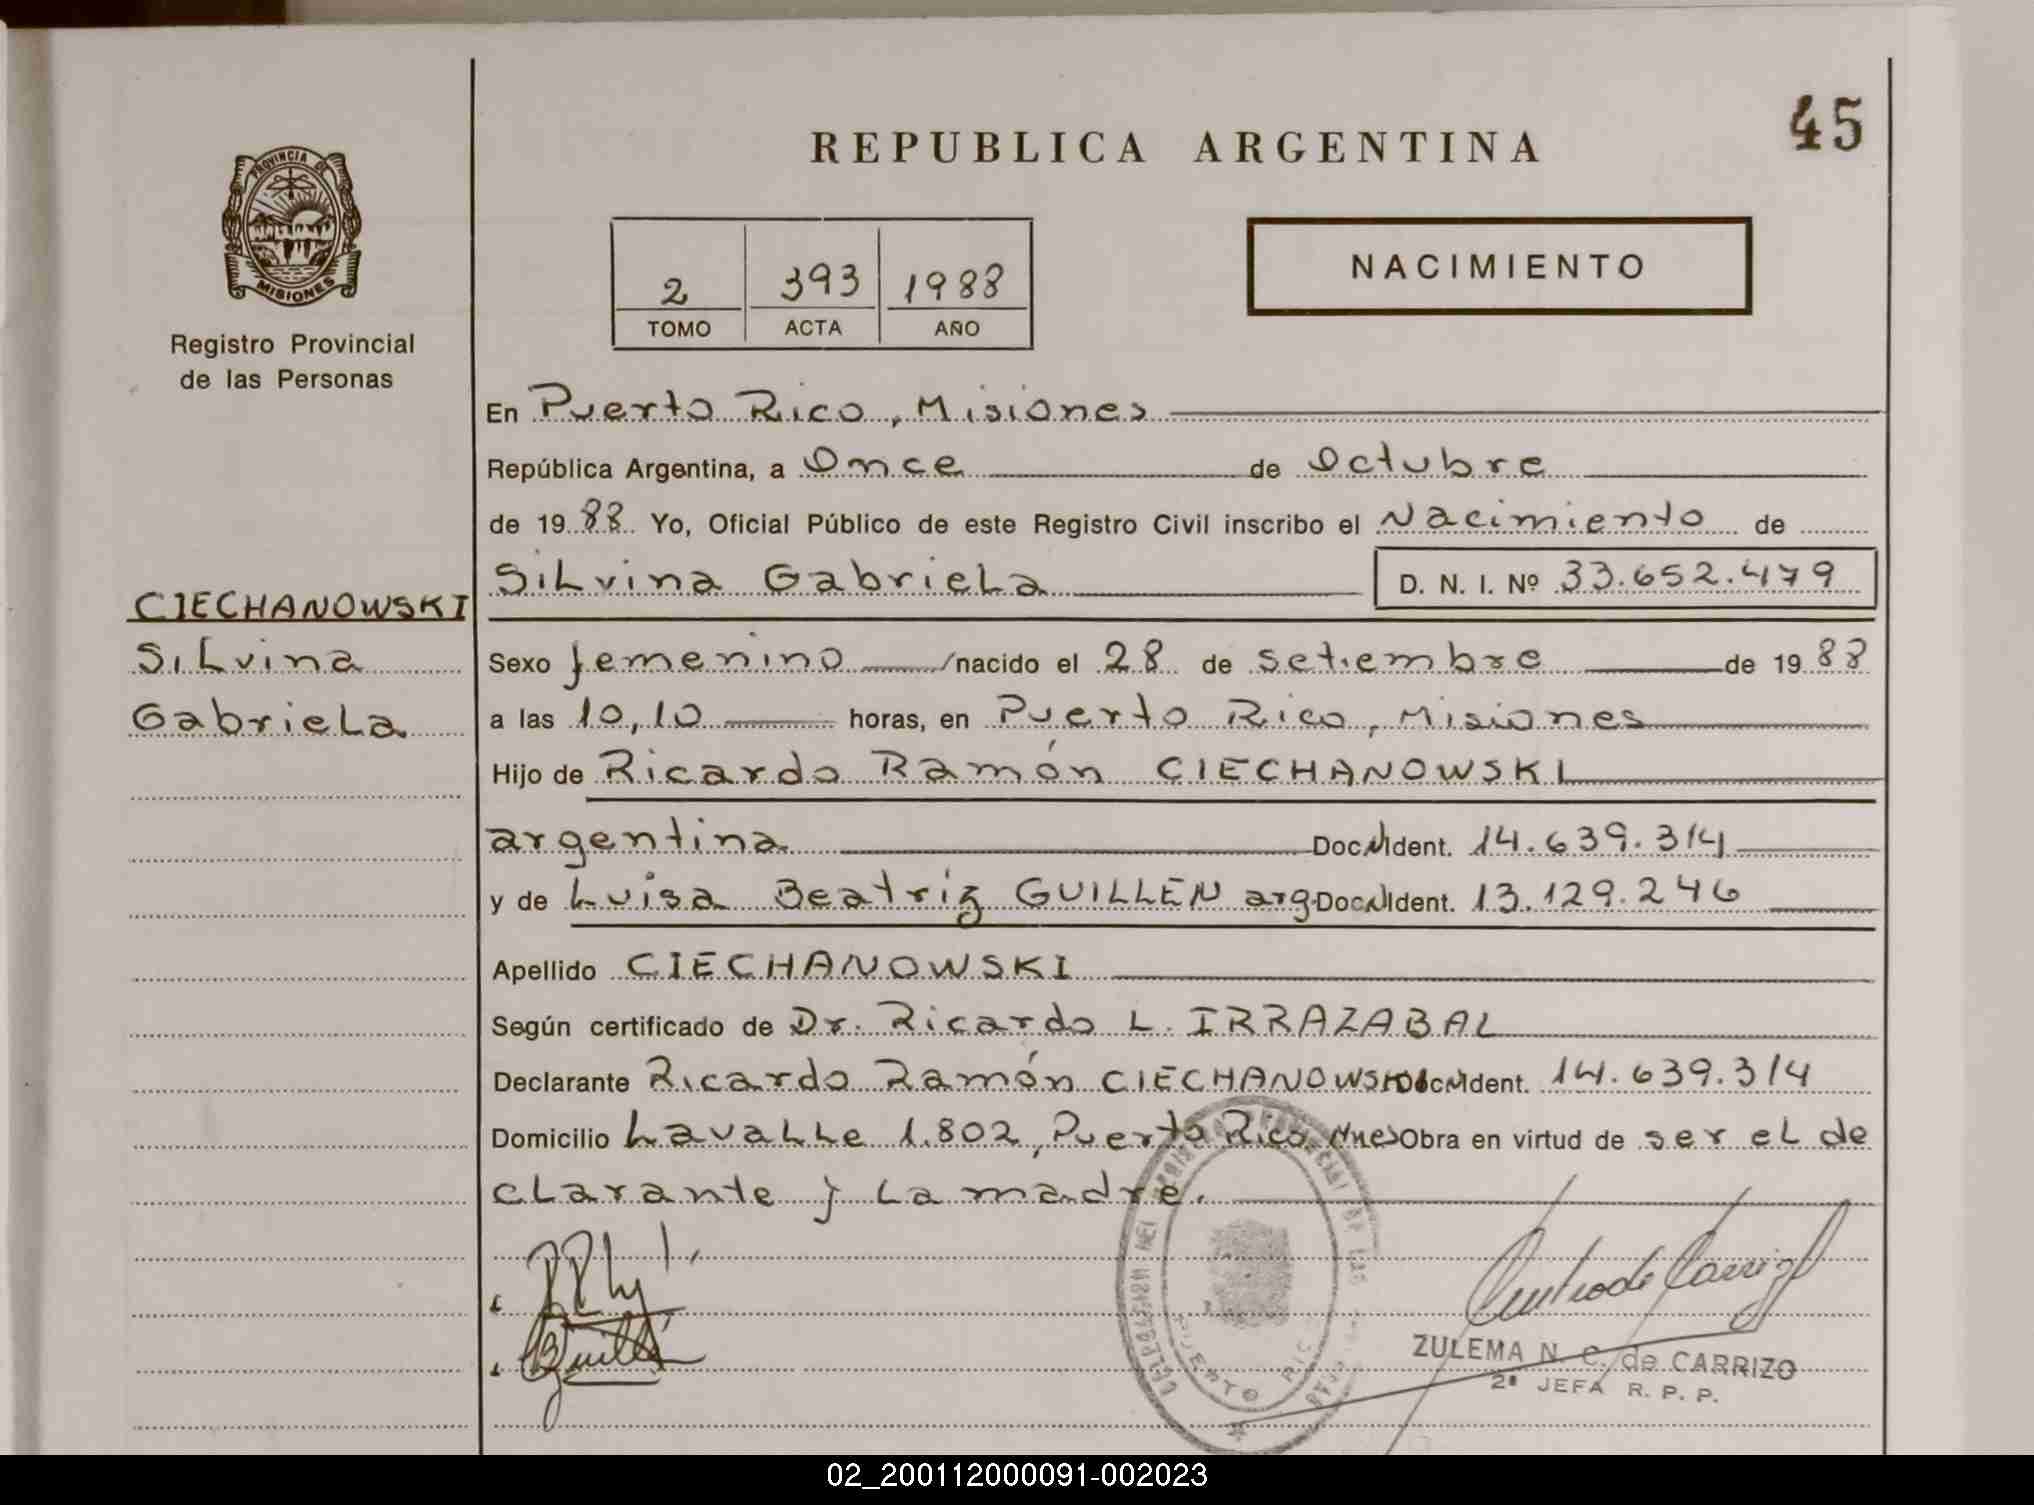 45
REPUBLICA ARGENTINA
PROVINCIA DE
MISIONES
Registro Provincial
de las Personas
2 393 1988
TOMO ACTA AÑO
NACIMIENTO
En Puerto Rico, Misiones
República Argentina, a Once de Octubre
de 19 88 Yo, Oficial Público de este Registro Civil inscribo el Nacimiento de
Silvina Gabriela D. N. I. Nº 33.652.479
CIECHANOWSKI
Silvina
Gabriela
Sexo femenino /nacido el 28 de setiembre de 19 88
a las 10,10 horas, en Puerto Rico, Misiones
Hijo de Ricardo Ramón CIECHANOWSKI
argentina Doc. Ident. 14.639.314
y de Luisa Beatríz GUILLEN arg. Doc. Ident. 13.129.246
Apellido CIECHANOWSKI
Según certificado de Dr. Ricardo L. IRRAZABAL
Declarante Ricardo Ramón CIECHANOWSKI Doc. Ident. 14.639.314
Domicilio Lavalle 1.802, Puerto Rico, Mnes Obra en virtud de ser el de
clarante y la madre.
PUERTO RICO
ZULEMA N. C. de CARRIZO
2ª JEFA R. P. P.
02_200112000091-002023